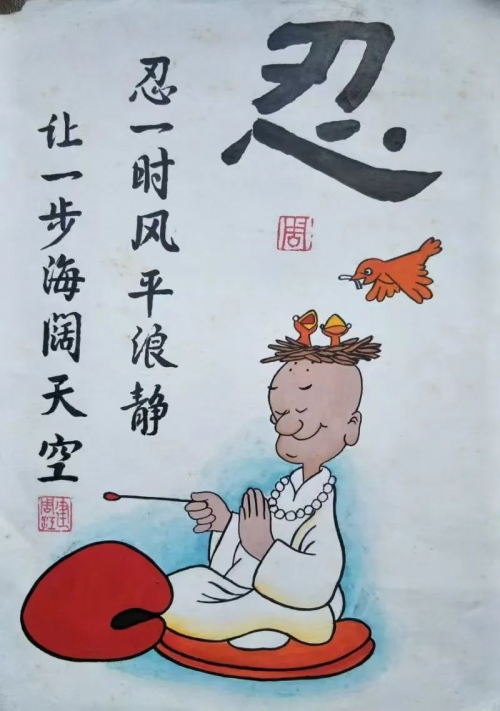 忍
周
忍一时风平浪静
让一步海阔天空